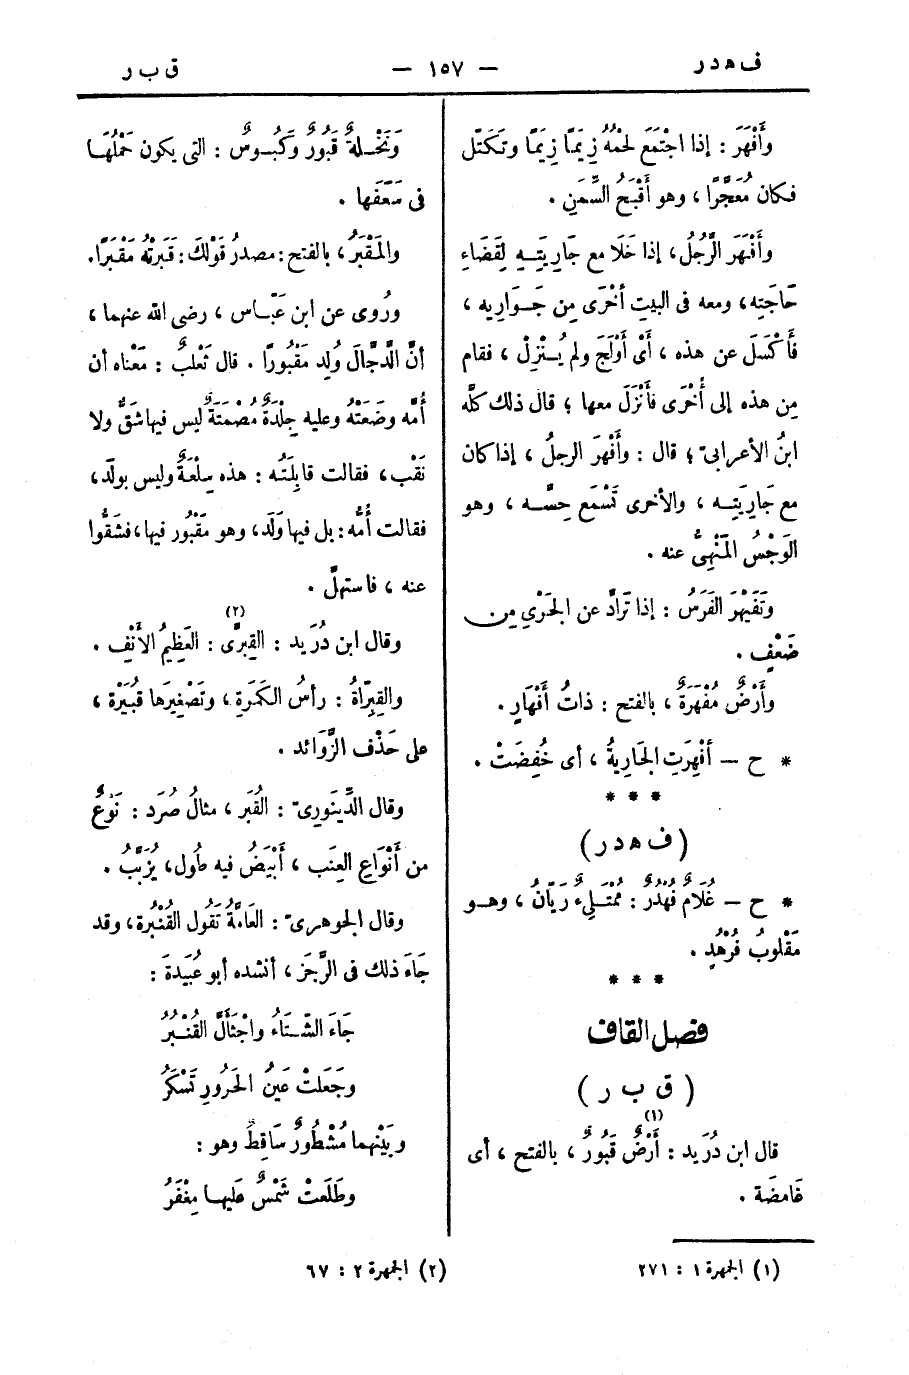 ف هدر — ١٥٧ — ق ب ر
وأَفْهَرَ : إذا اجْتَمَعَ لحْمُهُ زِيَمًا زِيَمًا وتَكَتَّل
فكان مُعَجَّرًا ، وهو أَقْبَحُ السِّمَنِ .
وأَفْهَرَ الرَّجُلُ، إذا خَلَا مع جَارِيَتِـهِ لِقَضَاءِ
حَاجَتِه، ومعه فى البيتِ أُخْرَى مِن جَـوَارِيه ،
فَأَكْسَلَ عن هذه ، أَىْ أَوْلَجَ ولم يُـنْزِلْ ، فقام
مِن هذه إلى أُخْرَى فأَنْزَلَ معها ؛ قال ذلك كلَّه
ابنُ الأعرابىّ ؛ قال : وأَفْهَرَ الرجلُ ، إذا كان
مع جَارِيَتِـه ، والأخرى تَسْمَع حِسَّـه ، وهو
الوَجْسُ المَنْهِىُّ عنه .
وتَفَيْهَرَ الفَرَسُ : إذا تَرَادَّ عن الجَرْيِ مِن
ضَعْفٍ .
وأَرْضٌ مُفْهَرَةٌ ، بالفتح : ذاتُ أَفْهَارٍ .
* ح — أفْهِرَتِ الجَارِيةُ ، أى خُفِضَتْ .
* * *
(ف هدر)
* ح — غُلَامٌ فُهْدُرٌ : مُمْتَلِىء رَيّانُ ، وهـو
مَقْلوبُ فُرْهُدٍ .
* * *
فصل القاف
(ق ب ر)
قال ابن دُرَيد : أَرْضٌ قَبُورٌ (١) ، بالفتح ، أى
غَامضَة .
(١) الجمهرة ١ : ٢٧١
وَنَخْـلةٌ قَبُورٌ وَكَبُـوسٌ : التى يكون حَمْلُهَـا
فى سَعَفَها .
والمَقْبَرُ ، بالفتح : مصدرُ قَوْلكَ : قَبَرْتُه مَقْبَرًا.
ورُوى عن ابن عَبّـاس ، رضى الله عنهما ،
أنَّ الدَّجّالَ وُلِد مَقْبُورًا . قال ثَعْلبٌ : مَعْناه أن
أُمَّه وضَعَتْهُ وعليه جِلْدَةٌ مُصْمَتَةٌ ليس فيها شَقٌّ ولا
نَقْب ، فقالت قابِلَتُـه : هذه سِلْعَةٌ وليس بولَد،
فقالت أُمُّه : بل فيها وَلَد، وهو مَقْبُور فيها، فشَقُّوا
عنه ، فاستهلَّ .
وقال ابن دُرَيد : القِبِرَّى (٢) : العَظِيمُ الأنْفِ .
والقِبِرّاةُ : رأسُ الكَمَرَةِ ، وتَصْغِيرَها قُبَيْرَة ،
على حَذْف الزَّوَائد .
وقال الدِّينَورىّ : القُبَر ، مثالُ صُرَد : نَوْعٌ
من أَنْوَاعِ العِنَب ، أَبْيَضُ فيه طُول، يُزَبَّبُ .
وقال الجوهرىّ : العَامَّةُ تَقُول القُنْبُرة، وقد
جَاءَ ذلك فى الرَّجَز ، أنشده أبو عُبَيدَةَ :
جَاءَ الشِّـتَاءُ واجْثَأَلَّ القُنْـبُرُ
وجَعَلتْ عَينُ الحَرُورِ تَسْكَرُ
وبَيْنهما مَشْطُورٌ سَاقِطٌ وهو :
وطَلَعَتْ شَمْسٌ عَليهـا مِغْفَرُ
(٢) الجمهرة ٢ : ٦٧